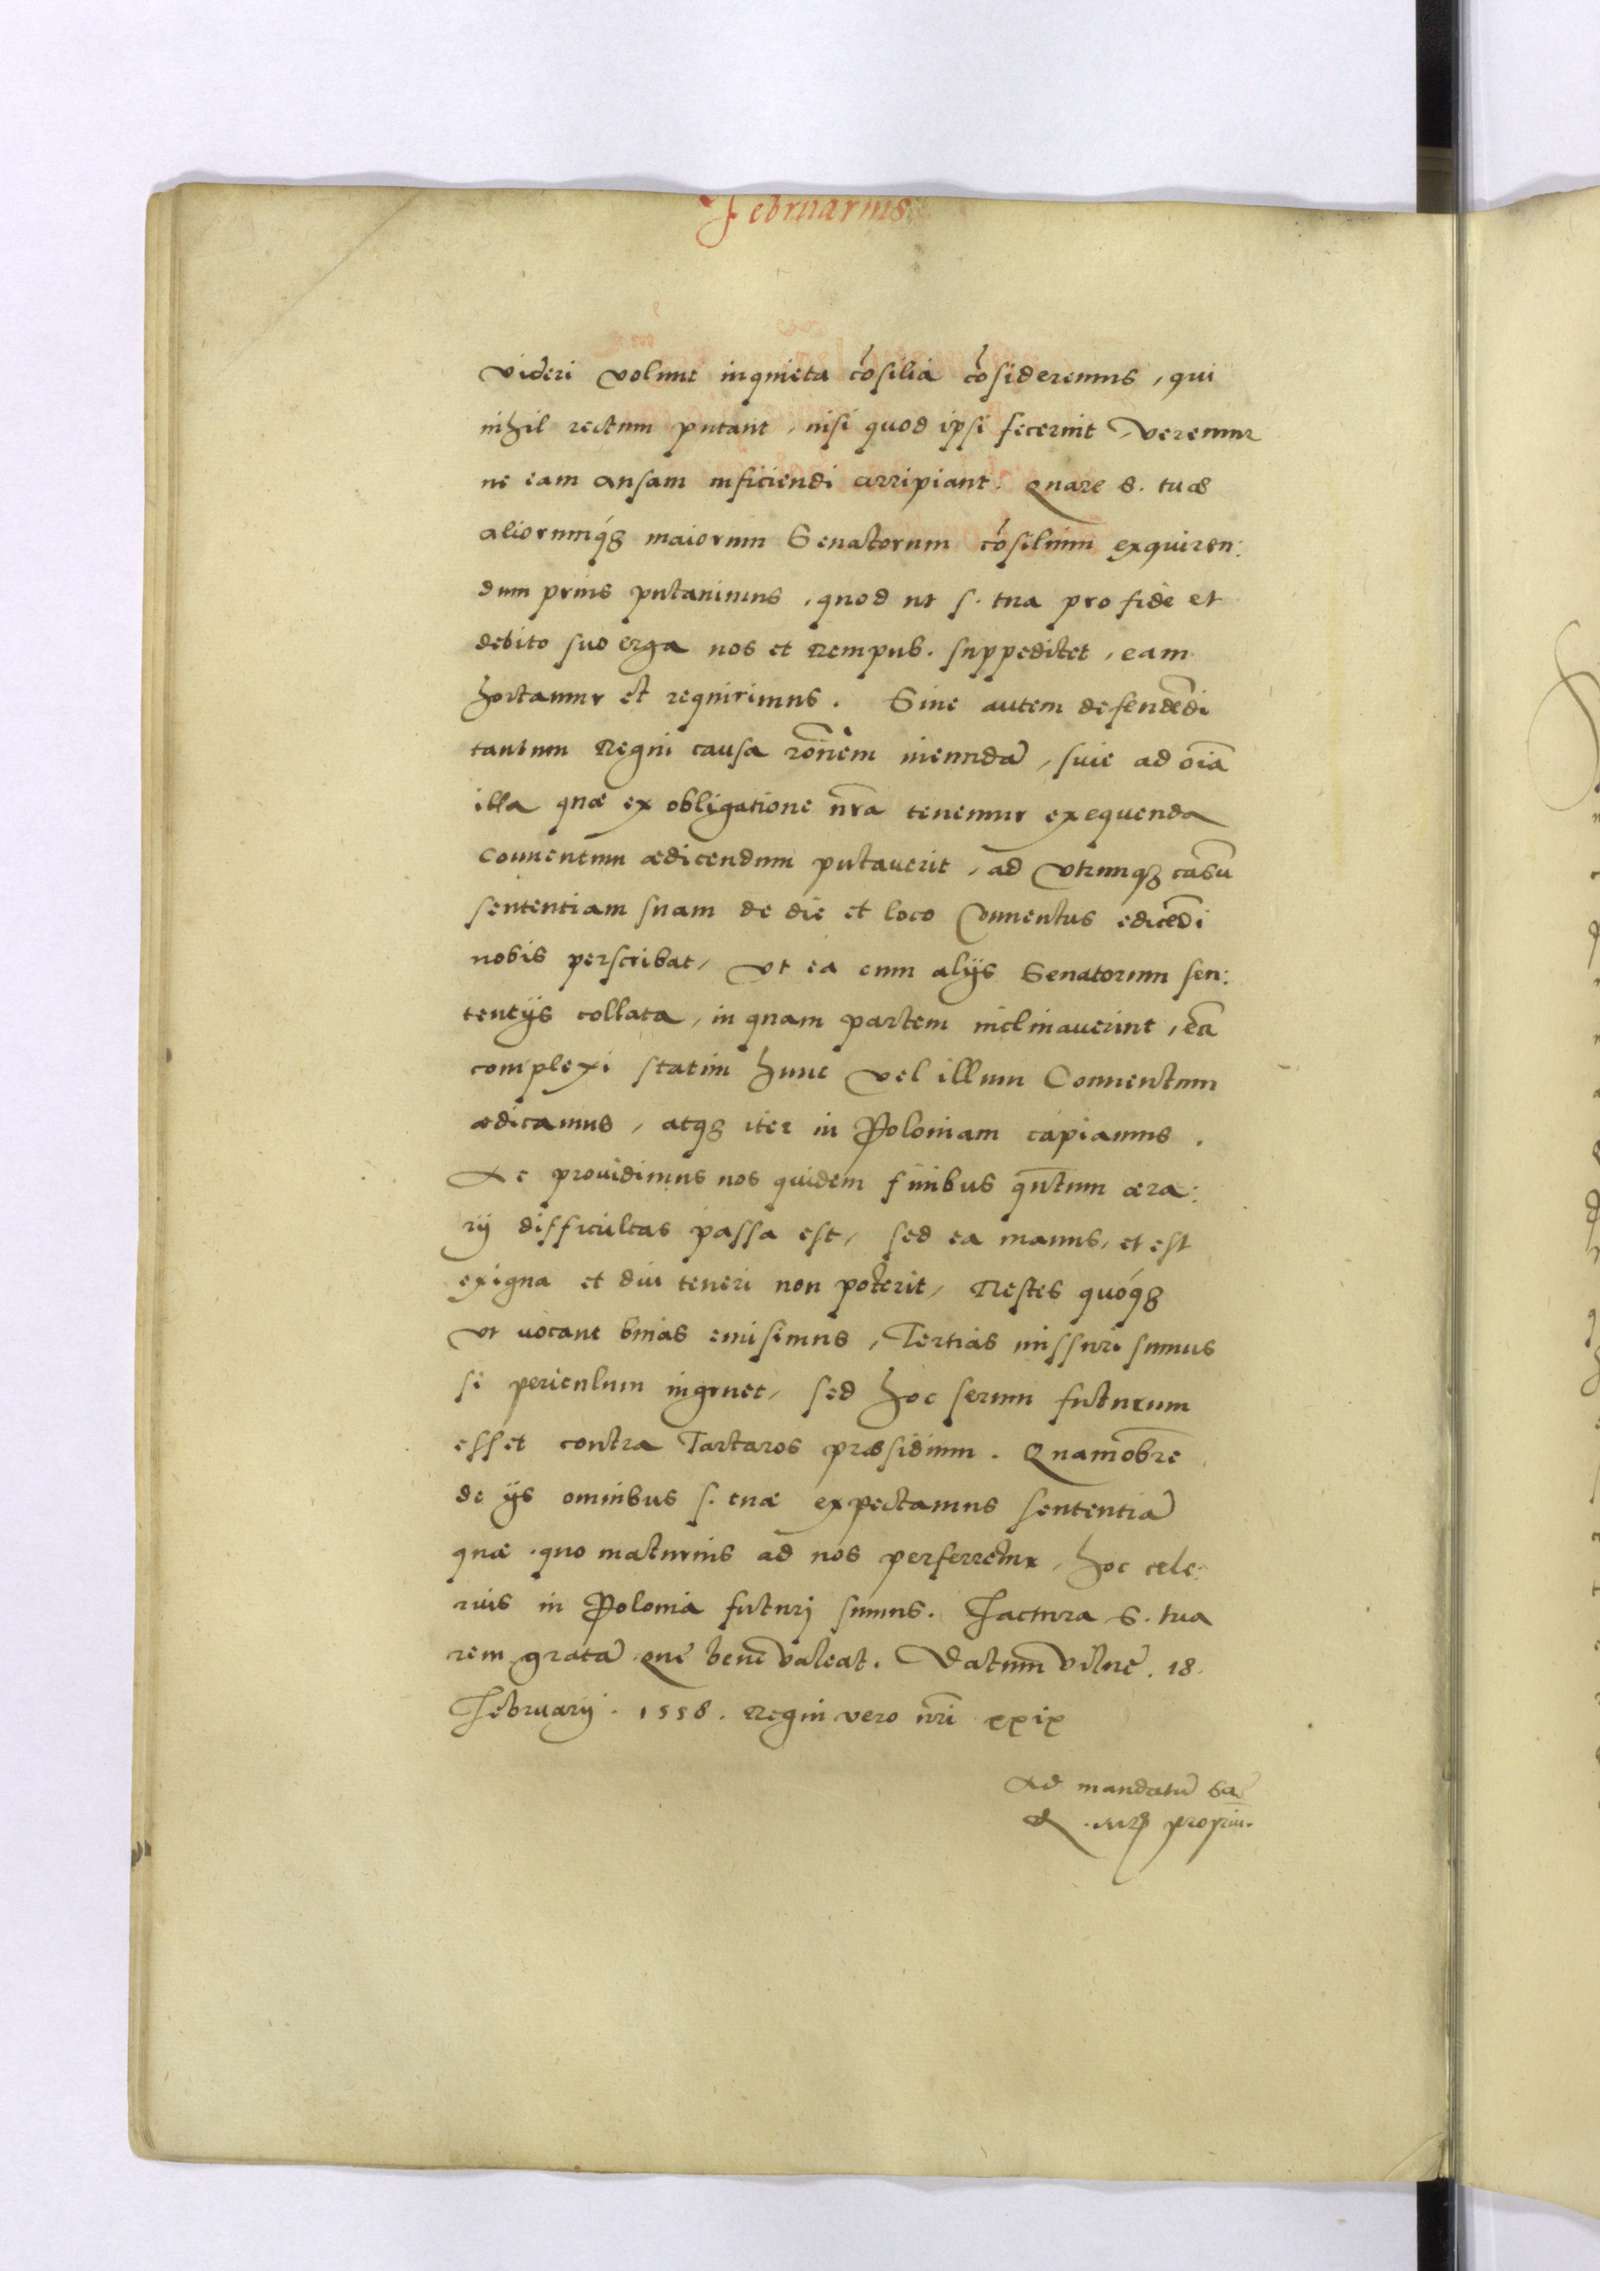 Februarius
videri volunt inquieta cōsilia cōsideremus, qui
nihil rectum putant, nisi quod ipsi fecerint, veremur
ne eam ansam inficiendi arripiant. Quare S. tuæ
aliorumq́ꝫ maiorum Senatorum cōsilium exquiren:
dum prius putauimus, quod ut s. tua pro fide et
debito suo erga nos et Rempub. suppeditet, eam
hortamur et requirimus. Siue autem defendēdi
tantum Regni causa rōnem ineundā, siue ad oīa
illa quæ ex obligatione nr̄a tenemur exequenda
Conuentum ædicendum putauerit, ad vtrumqꝫ casū
sententiam suam de die et loco Conuentus edicēdi
nobis perscribat, vt ea cum alijs Senatorum sen:
tentijs collata, in quam partem inclinauerint, eā
complexi statim hunc vel illum Conuentum
ædicamus, atqꝫ iter in Poloniam capiamus.
Ac prouidimus nos quidem finibus qn̄tum æra:
rij difficultas passa est, sed ea manus, et est
exigua et diu teneri non poterit, Restes quóqꝫ
vt uocant binas emisimus, Tertias missuri sumus
si periculum ingruet, sed hoc serum futurum
esset contra Tartaros præsidium. Quamobrē
de ijs omnibus s. tuæ expectamus sententiā
quæ quo maturius ad nos perferretur, hoc cele:
rius in Polonia futuri sumus. Factura S. tua
rem gratā. Quē bene valeat. Datum Vilnē. 18.
Februarij. 1558. Regni vero nr̄i xxix
Ad mandatū Sāe
propriū.